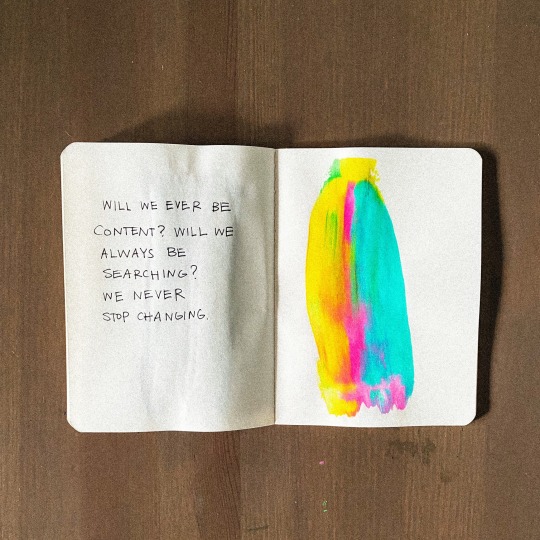 WILL WE EVER BE
CONTENT? WILL WE
ALWAYS BE
SEARCHING?
WE NEVER
STOP CHANGING.